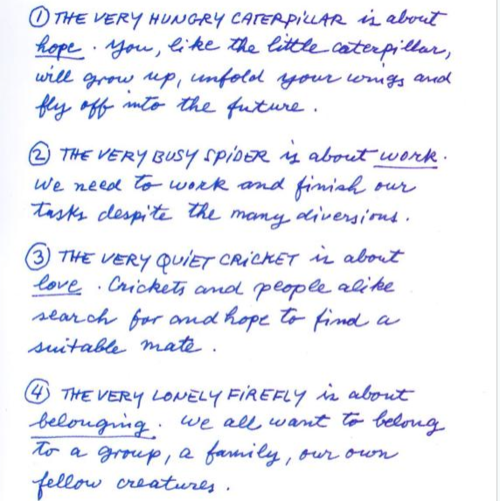 ① THE VERY HUNGRY CATERPILLAR is about
hope. You, like the little caterpillar,
will grow up, unfold your wings and
fly off into the future.
② THE VERY BUSY SPIDER is about work.
We need to work and finish our
tasks despite the many diversions.
③ THE VERY QUIET CRICKET is about
love. Crickets and people alike
search for and hope to find a
suitable mate.
④ THE VERY LONELY FIREFLY is about
belonging. We all want to belong
to a group, a family, our own
fellow creatures.